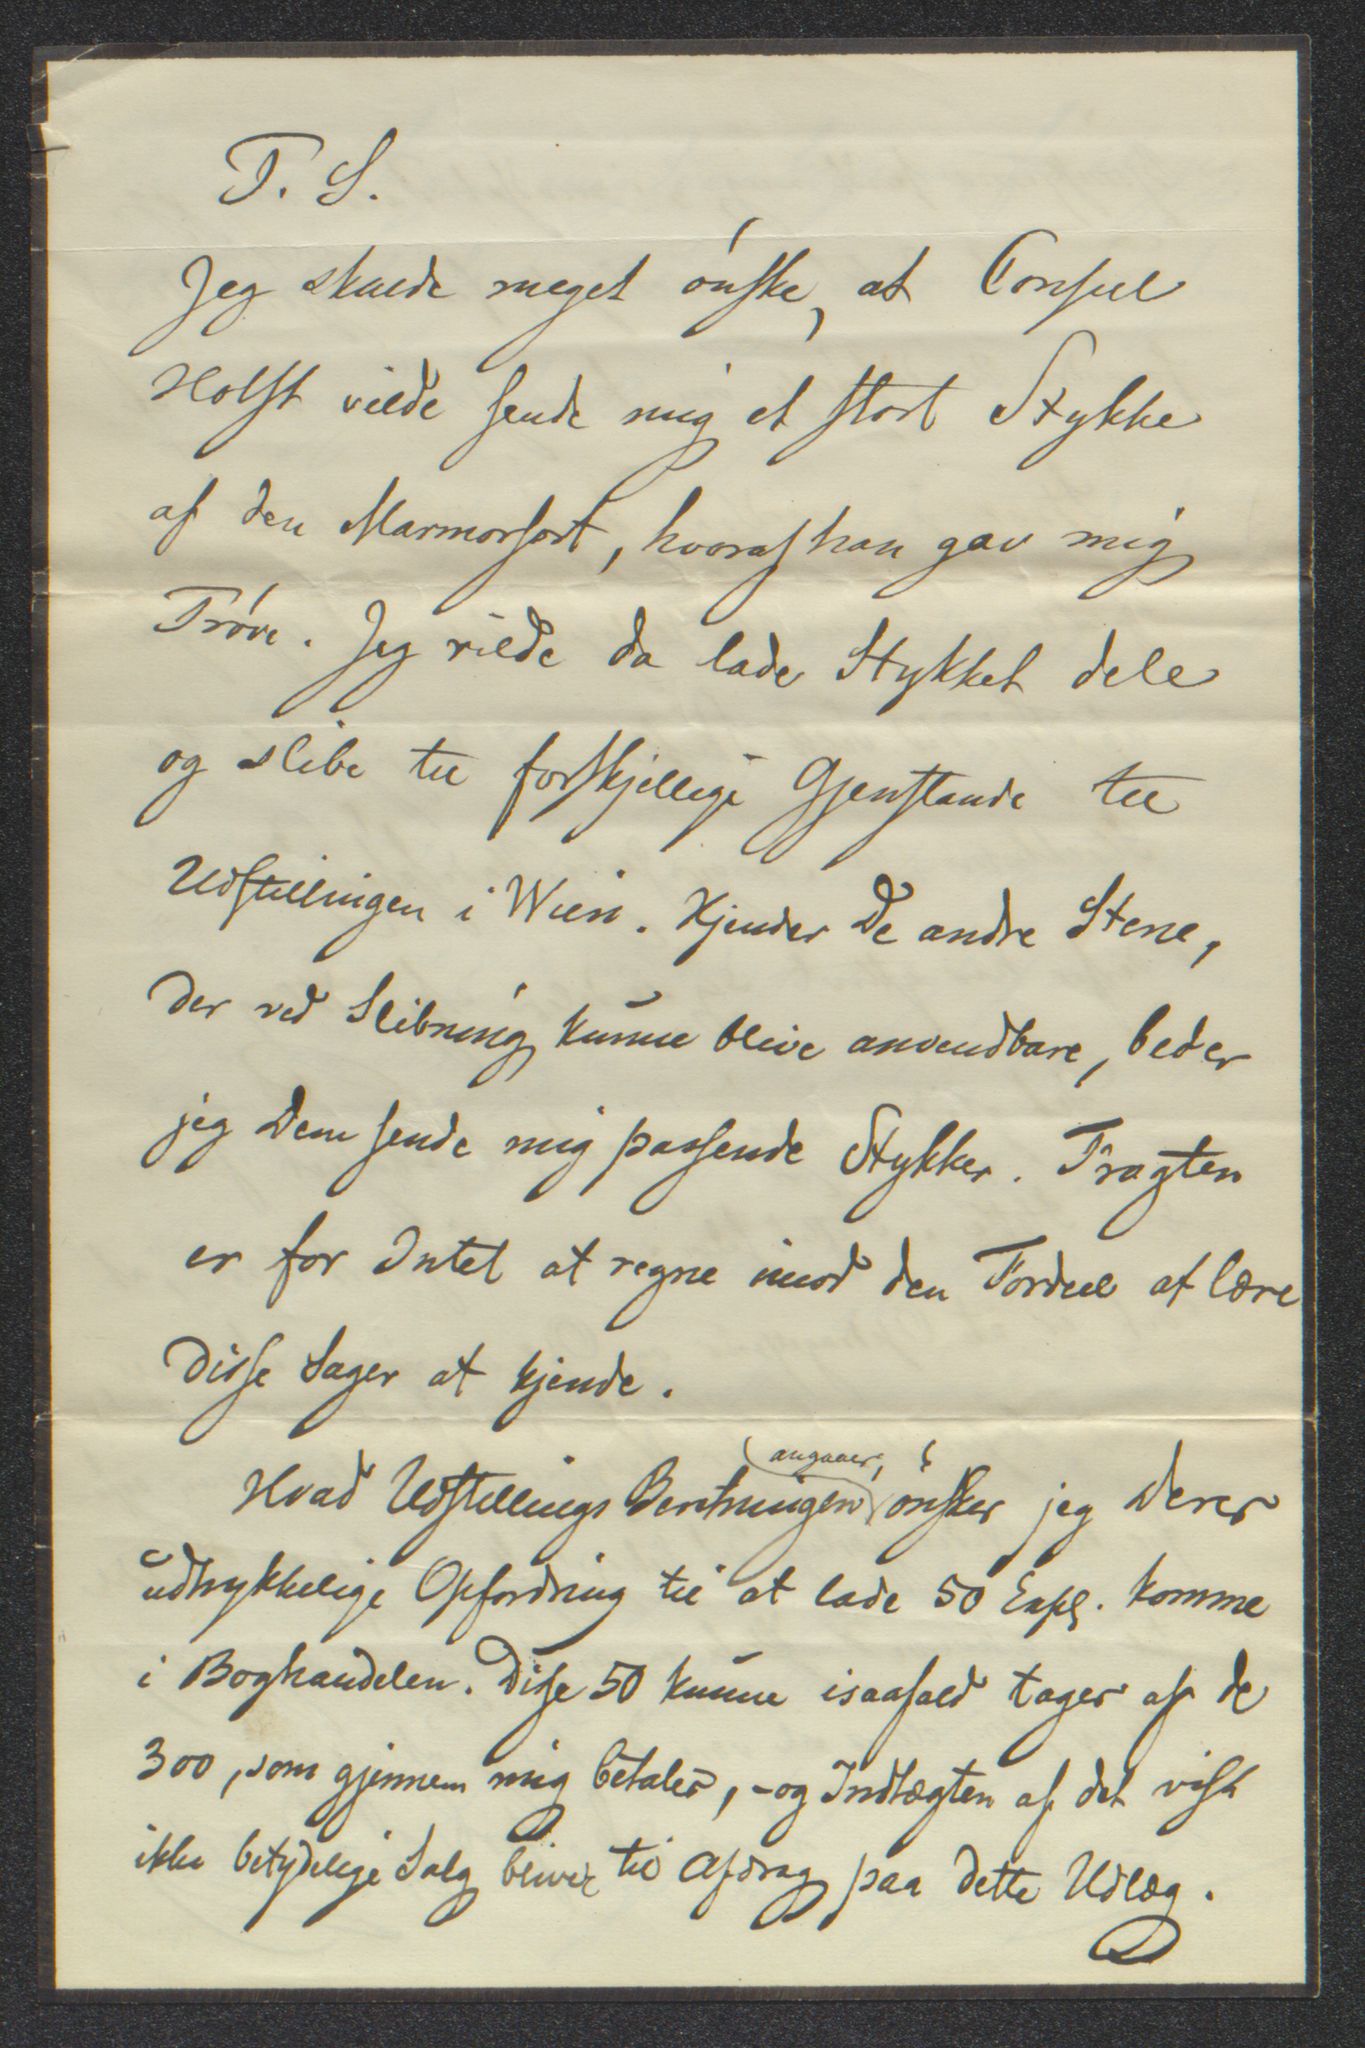 P. S.
Jeg skulde meget önske, at Consul
Holst vilde sende mig et stort Stykke
af den Marmorsort, hvoraf han gav mig
Pröve. Jeg vilde da lade Stykket dele
og slibe til forskjellige Gjenstande til
Udstillingen i Wien. Kjender De andre Stene,
der ved Slibning kunne blive anvendbare, beder
jeg Dem sende mig passende Stykker. Fragten
er for Intet at regne imod den Fordeel at lære
disse Sager at kjende.
Hvad Udstillings Beretningen angaaer, önsker jeg Deres
udtrykkelige Opfordring til at lade 50 Expl. komme
i Boghandelen. Disse 50 kunne isaafald tages af de
300, som gjennem mig betales, - og Indtægten af det vist
ikke betydelige Salg bliver til Afdrag paa dette Udlæg.